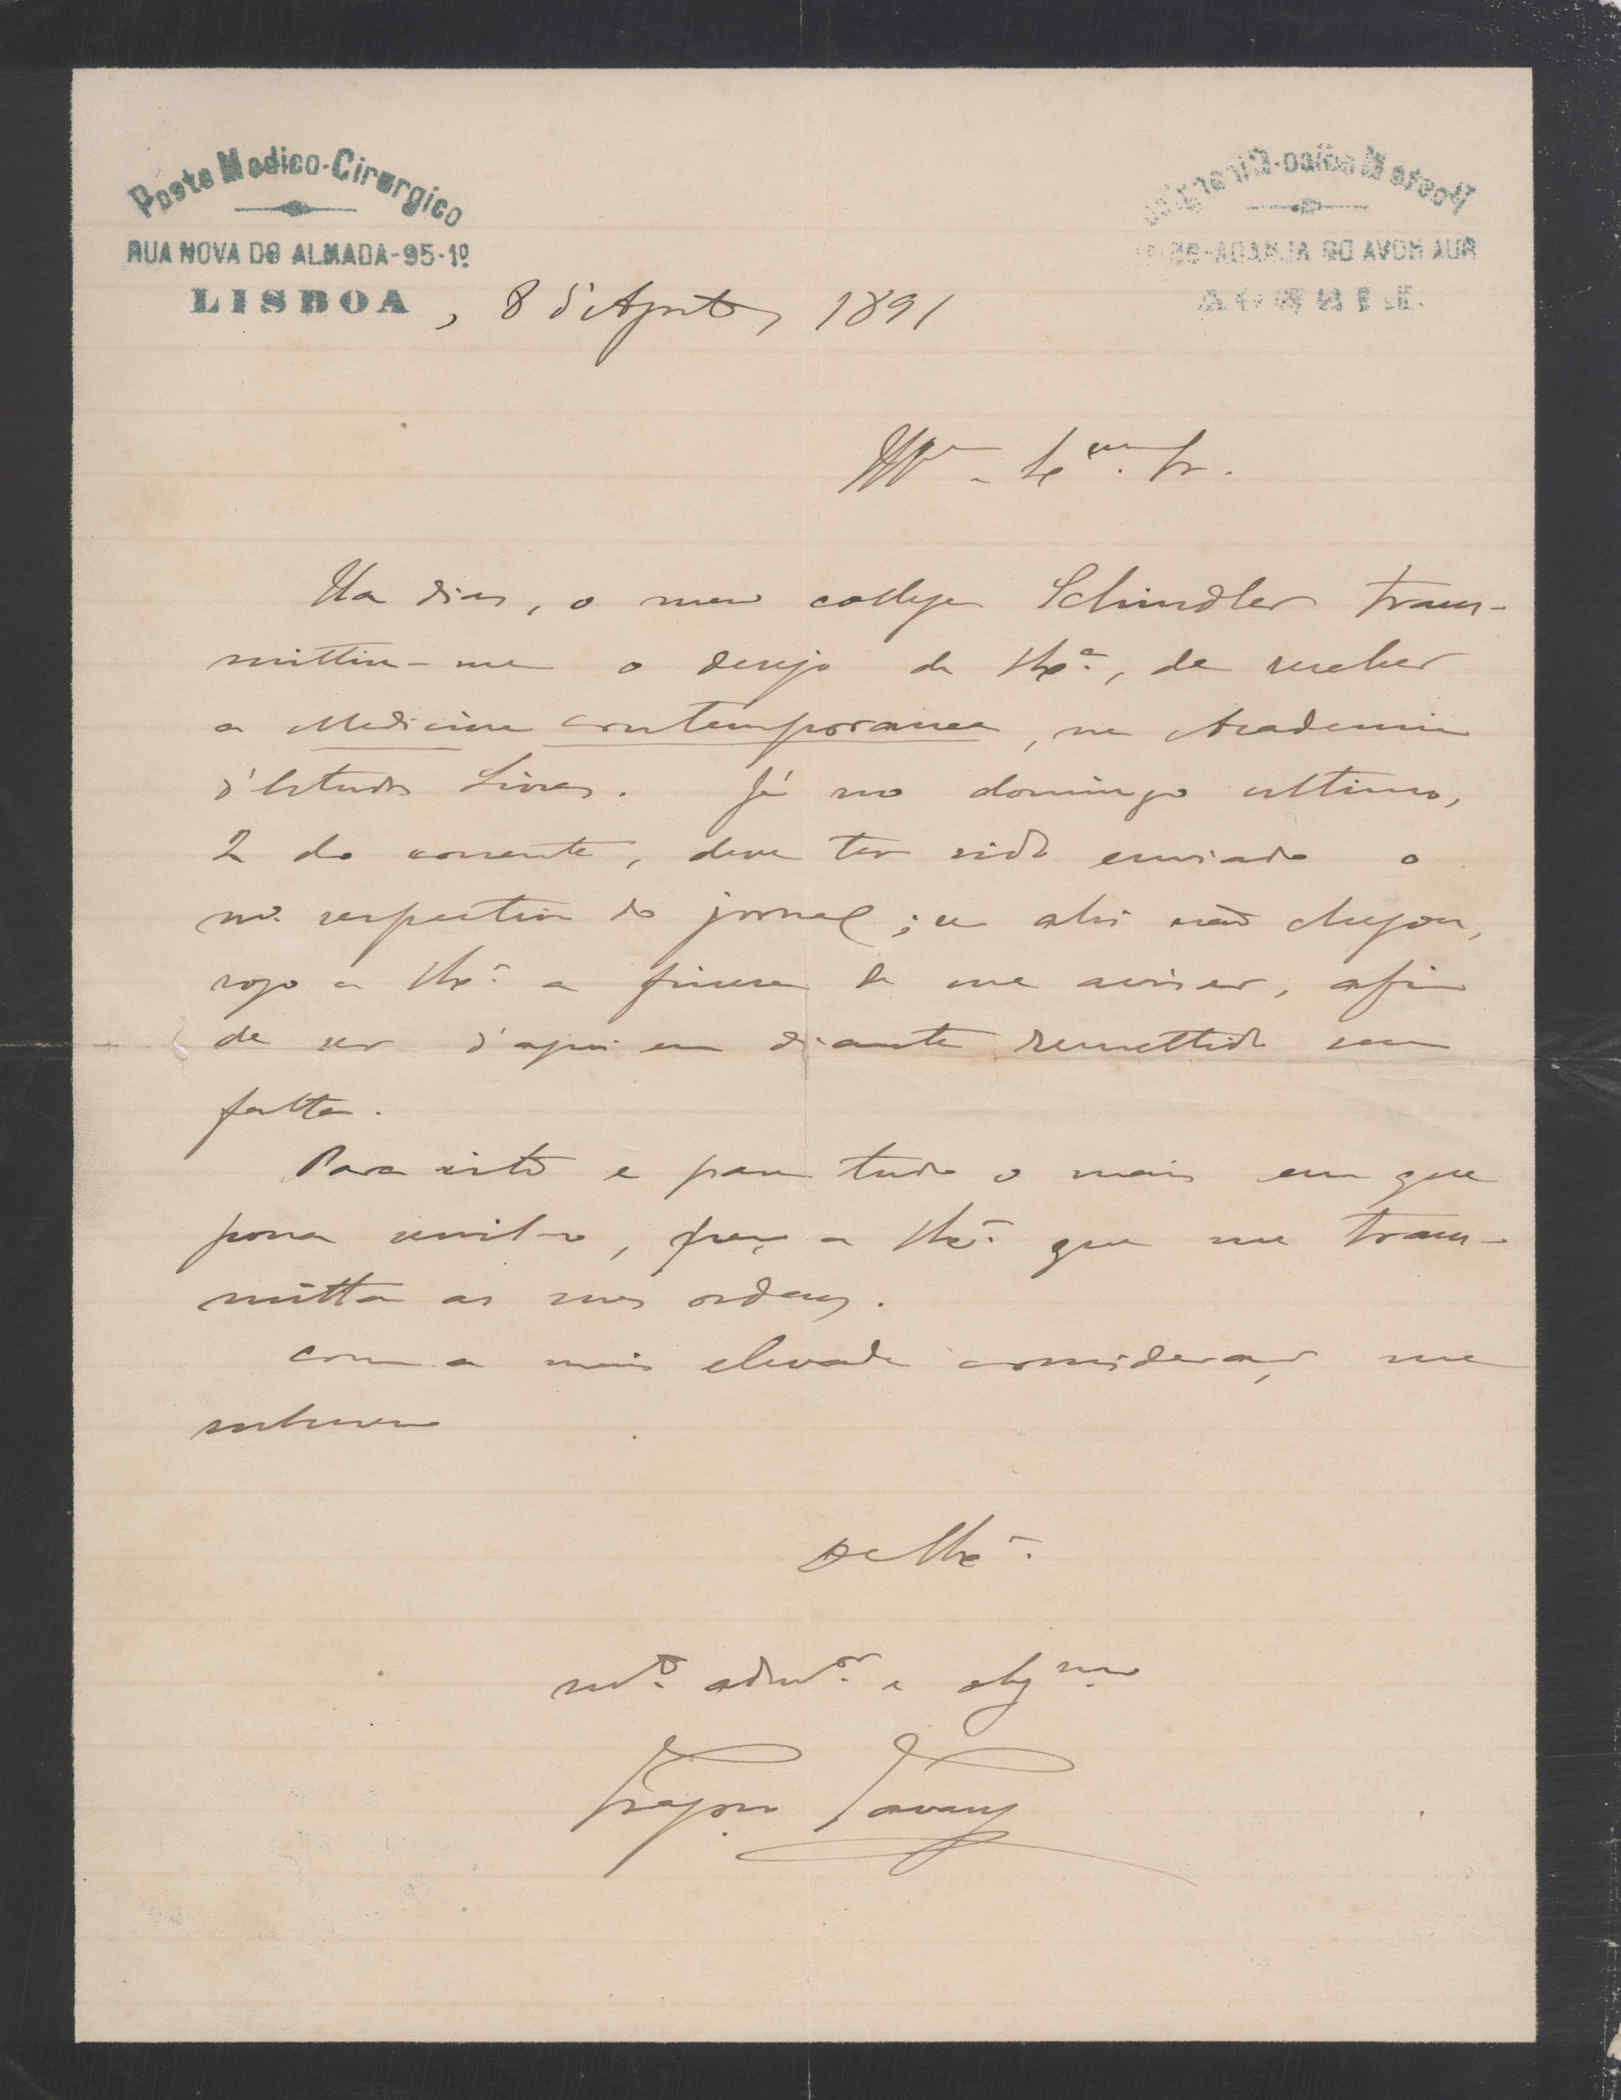 Posto Medico-Cirurgico
RUA NOVA DO ALMADA-95-1º
LISBOA, 8 d'Agosto, 1891
Illmo. Exmo. Sr.
Ha dias, o meu collega Schindler trans-
mittiu-me o desejo de V.Exª., de receber
a Medicina contemporanea, na Academia
d'Estudos Livres. Já no domingo ultimo,
2 do corrente, deve ter sido enviado o
nº. respectivo do jornal; se ahi não chegou,
rogo a V.Exª. a fineza de me avisar, afim
de ser d'aqui em diante remettido sem
falta.
Para isto e para tudo o mais em que
possa servil-o, peço a V.Exª. que me trans-
mitta as suas ordens.
Com a mais elevada consideração me
subscrevo
De V.Exª.
mtº. admor. e obgmo.
Tavares